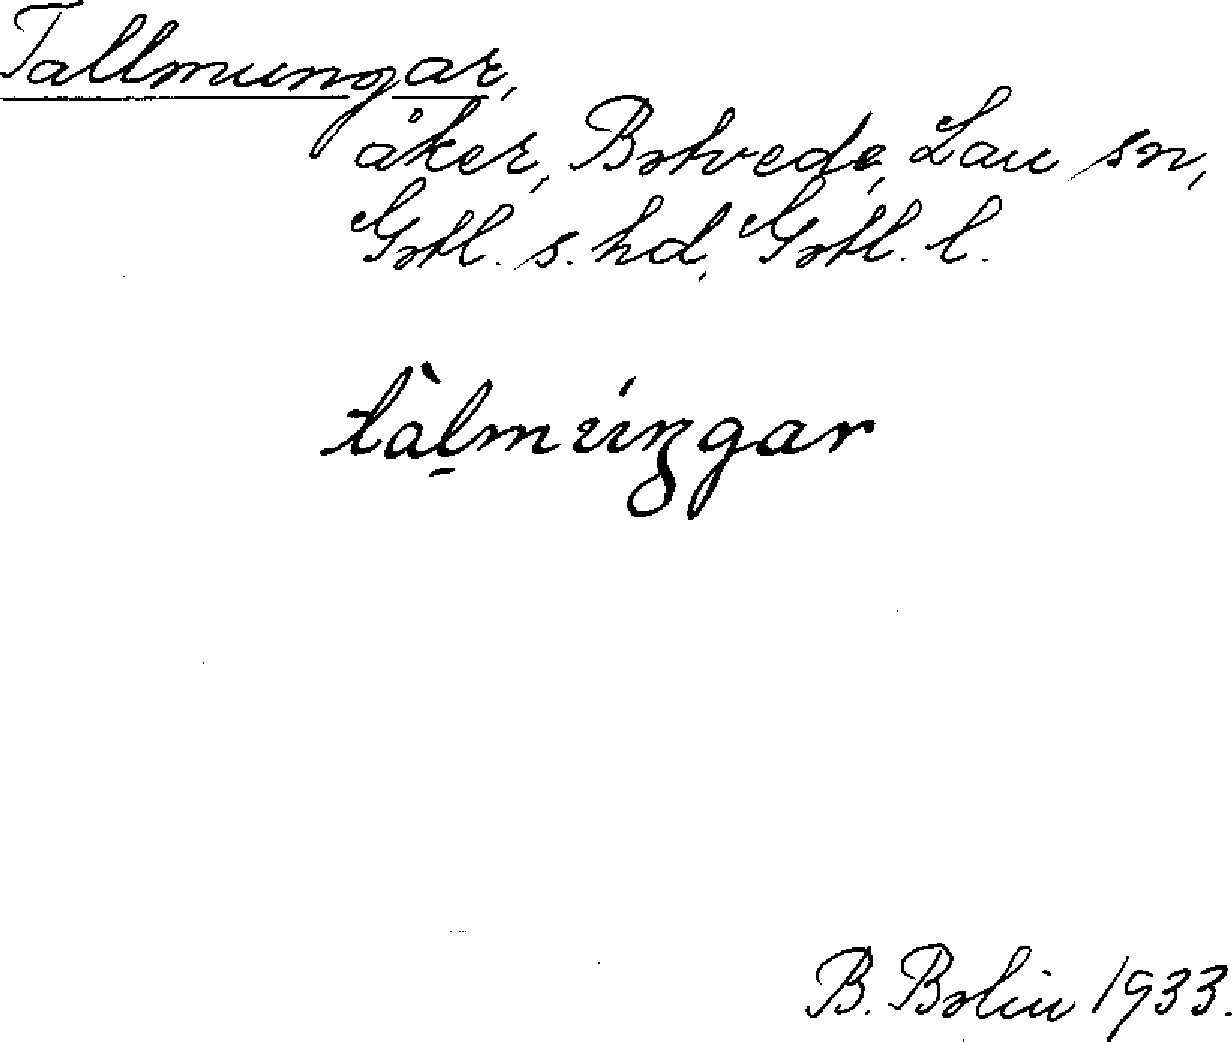 Tallmungar,
åker, Botvede, Lau sn,
Gotl. s. hd, Gotl. l.
tàl̠múŋgar
B. Bolin 1933.